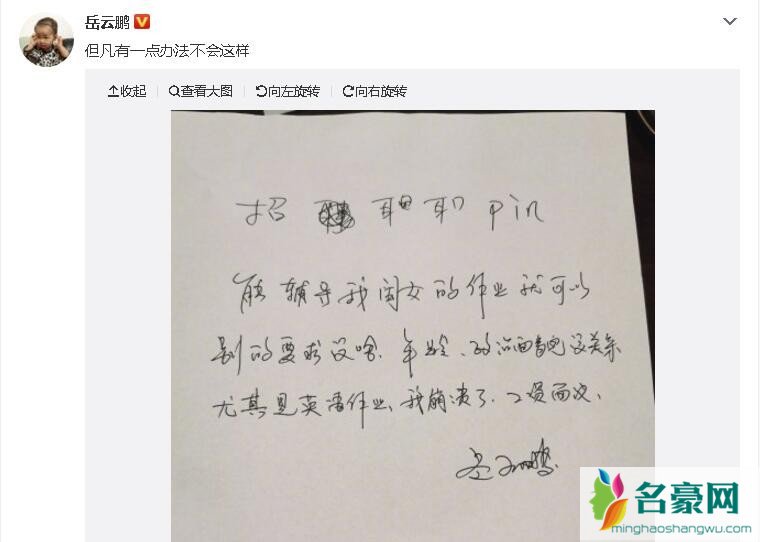 岳云鹏
但凡有一点办法不会这样
收起
查看大图
向左旋转
向右旋转
招 pin
能辅导我闺女的作业就可以
别的要求没啥、年龄、政治面貌没关系
尤其是英语作业、我崩溃了、工资面议、
岳云鹏
名豪网
minghaoshangwu.com